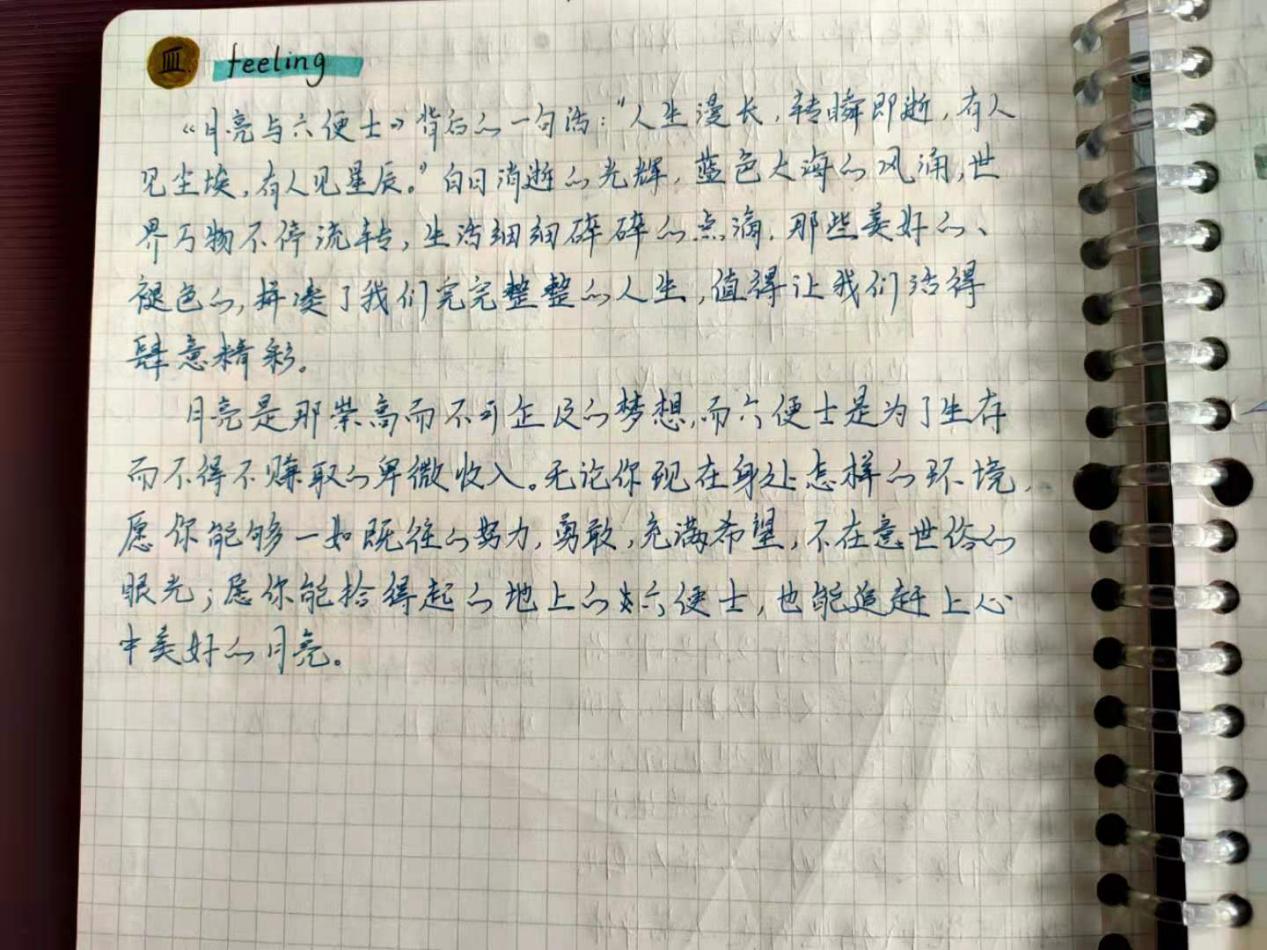 Ⅲ. feeling
《月亮与六便士》背后的一句话:"人生漫长,转瞬即逝,有人
见尘埃,有人见星辰。"白日消逝的光辉,蓝色大海的风涌,世
界万物不停流转,生活细细碎碎的点滴,那些美好的、
褪色的,拼凑了我们完完整整的人生,值得让我们活得
肆意精彩。
月亮是那崇高而不可企及的梦想,而六便士是为了生存
而不得不赚取的卑微收入。无论你现在身处怎样的环境,
愿你能够一如既往的努力,勇敢,充满希望,不在意世俗的
眼光;愿你能拾得起的地上的六便士,也能追赶上心
中美好的月亮。